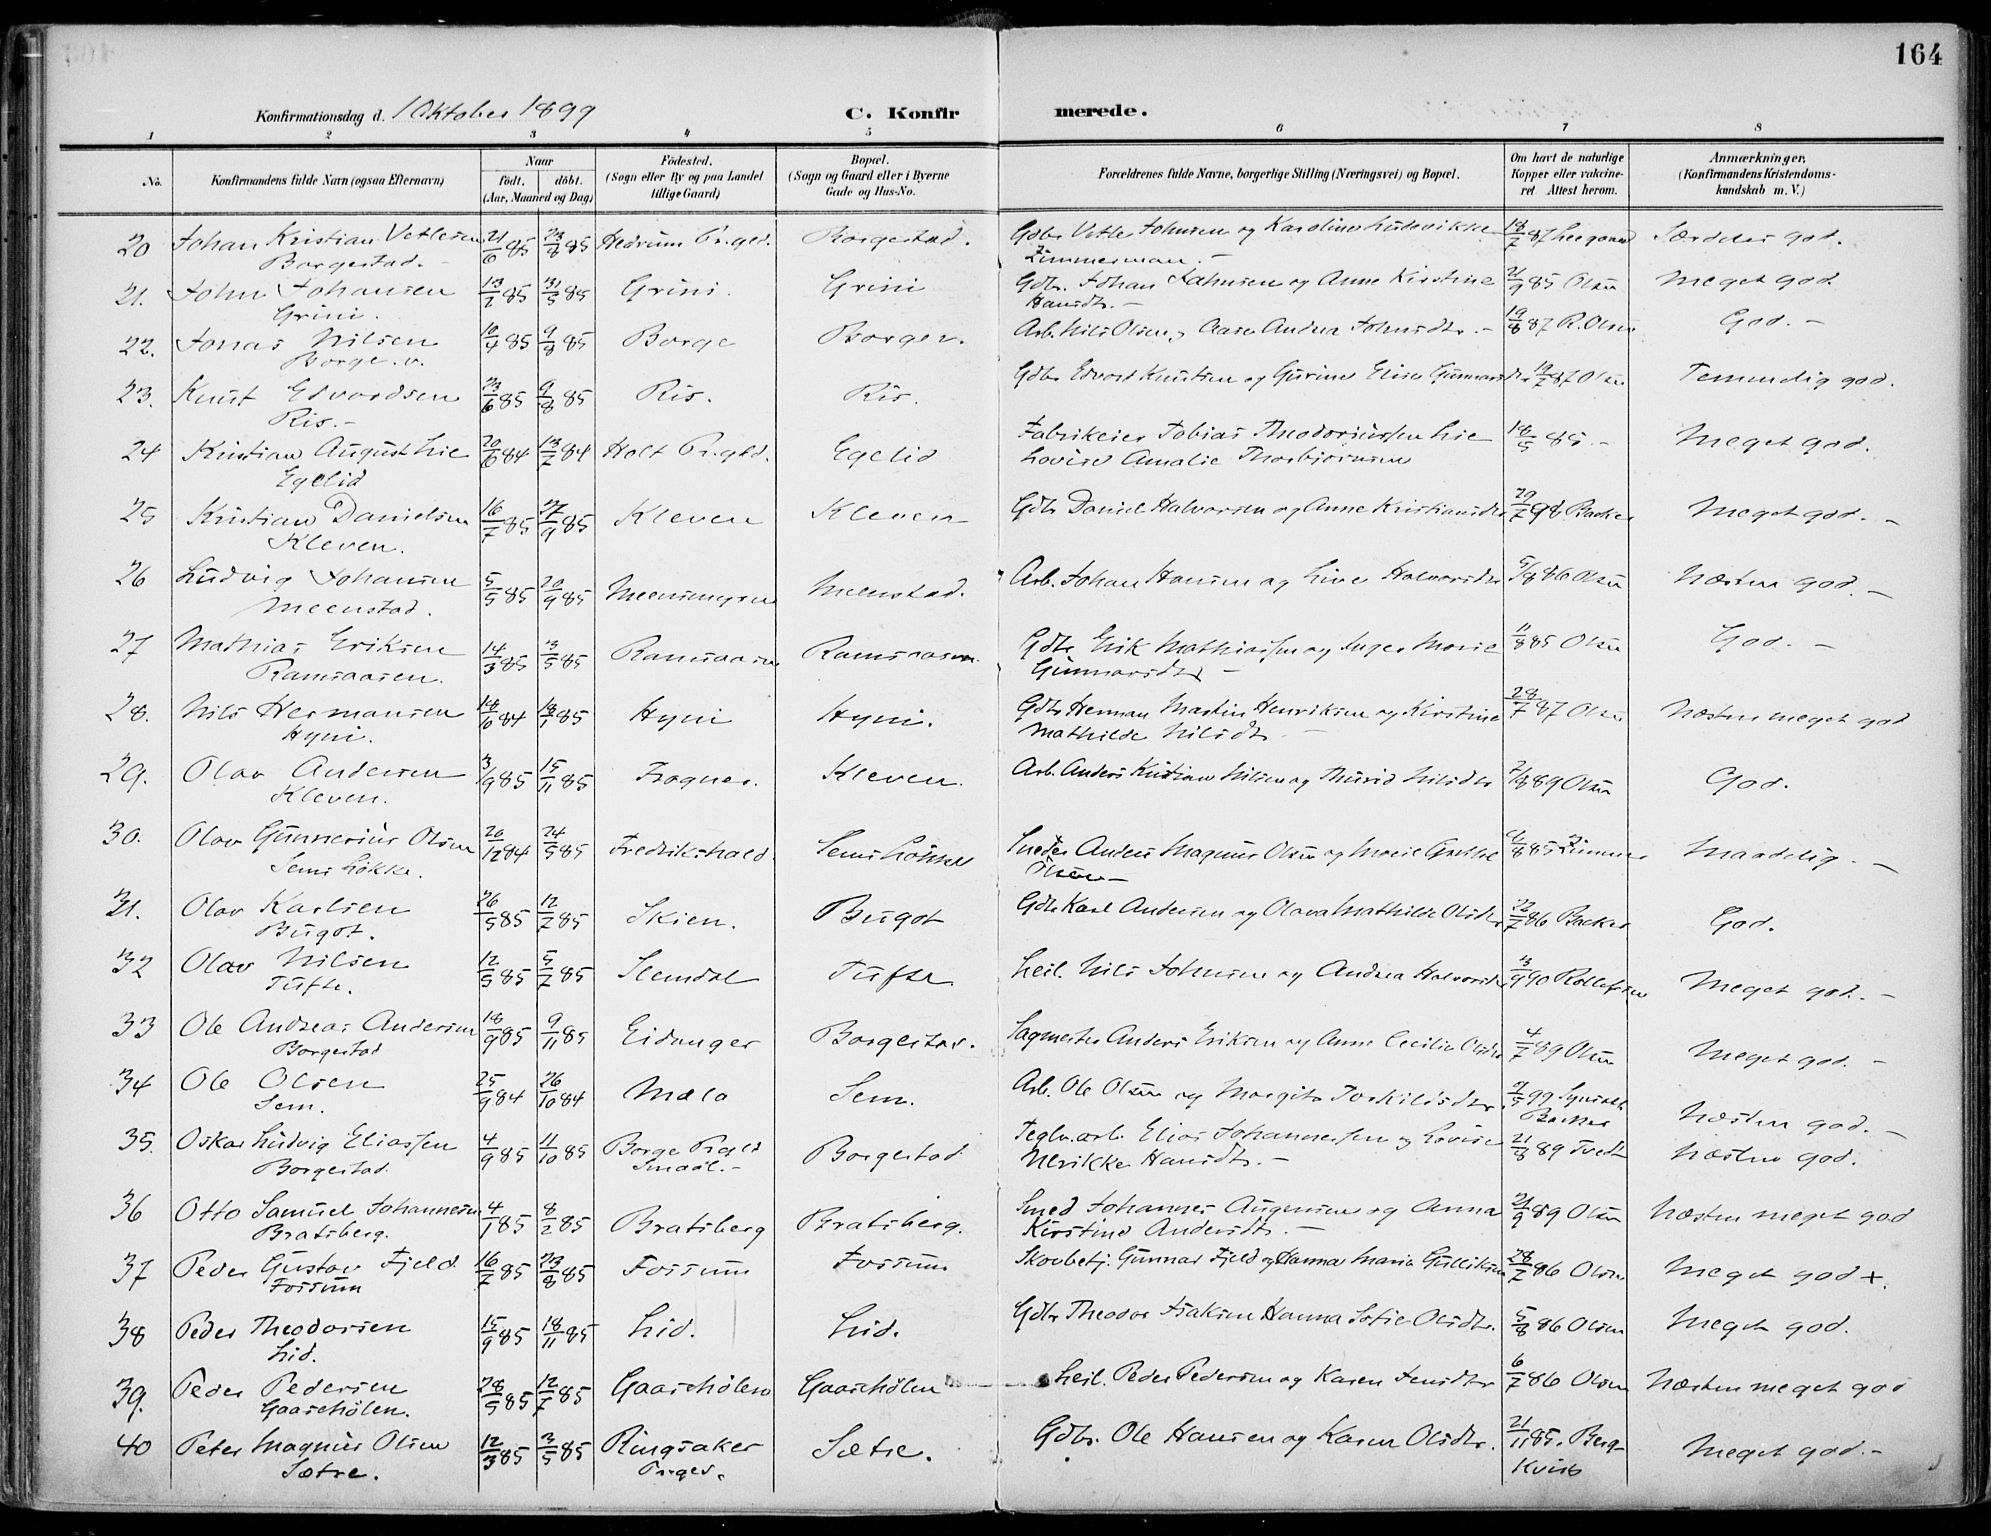 164
Konfirmationsdag d. 1 Oktober 1899 C. Konfirmerede.
1 2 3 4 5 6 7 8
No. Konfirmandens fulde Navn (ogsaa Efternavn) Naar født, døbt. (Aar, Maaned og Dag) Fødested. (Sogn eller By og paa Landet tillige Gaard) Bopæl. (Sogn og Gaard eller i Byerne Gade og Hus-No. Forældrenes fulde Navne, borgerlige Stilling (Næringsvei) og Bopæl. Om havt de naturlige Kopper eller vakcineret. Attest herom. Anmærkninger, (Konfirmandens Kristendomskundskab m. V.)
20 Johan Kristian Vetlesen 21/6 85 23/8 85 Hedrum Prgld. Borgestad. Gdbr. Vetle Johnsen og Karoline Ludovikke 18/7 87 Særdeles god.
Borgestad. Zimmerman.
21. John Johansen 13/2 85 31/5 85 Grini. Grini Gdbr. Johan Johnsen og Anne Kirstine 21/9 85 Olsen Meget god
Grini. Hansdtr.
22. Jonas Nilsen 10/4 85 9/8 85 Borge Borge v. Arb. Nils Olsen og Aase Andrea Johnsdtr. 19/8 87 R. Olsen God.
Borge. v.
23. Knut Edvardsen 23/6 85 9/8 85 Ris. Ris. Gdbr Edvard Knutsen og Gurine Elise Gunnarsdtr 19/7 87 Olsen Temmelig god.
Ris.
24 Kristian August Lie 20/6 84 13/7 84 Holt Prgld. Egelid Fabrikeier Tobias Theodoriussen Lie 18/5 85 Meget god.
Egelid Lovise Amalie Thorbjørnsen
25 Kristian Danielsen 16/7 85 27/9 85 Kleven Kleven Gdbr Daniel Halvorsen og Anne Kristiansdtr 20/7 98 Backer Meget god.
Kleven.
26 Ludvig Johansen 5/5 85 20/9 85 Meensmyren Meenstad. Arb. Johan Hansen og Line Halvorsdtr 5/8 86 Olsen Næsten god.
Meenstad.
27 Mathias Eriksen 14/3 85 3/5 85 Ramsaasen Ramsaasen Gdbr Erik Mathiassen og Inger Marie 11/8 85 Olsen God.
Ramsaasen. Gunnarsdtr
28. Nils Hermansen 18/10 84 18/1 85 Hyni Hyni. Gdbr Herman Martin Henriksen og Kirstine 28/7 87 Olsen Næsten meget god
Hyni. Mathilde Nilsdtr
29. Olav Andersen 3/9 85 15/11 85 Frogner. Kleven. Arb. Anders Kristian Nilsen og Thurid Nilsdtr 7/8 89 Olsen God.
Kleven.
30. Olav Gunnerius Olsen 20/12 84 24/5 85 Fredrikshald. Sems Løkke Snedker Anders Magnus Olsen og Marie Grethe Maadelig.
Sems Løkke. Olsen
31. Olav Karlsen 26/5 85 12/7 85 Skien. Bugot Gdbr Karl Andersen og Olava Mathilde Olsdtr 22/7 86 Backer God.
Bugot.
32 Olav Nilsen 12/5 85 5/7 85 Slemdal Tufte Leil. Nils Johnsen og Andrea Halvorsdtr 3/9 90 Rollefsen Meget god.
Tufte.
33 Ole Andreas Andersen 18/9 85 9/11 85 Eidanger Borgestad. Sagmester Anders Eriksen og Anne Cecilie Olsdtr 4/7 89 Olsen Meget god.
Borgestad
34 Ole Olsen 25/9 84 26/10 84 Mæla Sem. Arb. Ole Olsen og Margit Torkildsdtr. Næsten god.
Sem. Backer
35. Oskar Ludvig Eliassen 4/9 85 11/10 85 Borge Prgld Borgestad Teglv.arb. Elias Johannessen og Lovise 21/8 89 Tvedt Næsten god.
Borgestad. Smaal. Ulrikke Hansdtr.
36 Otto Samuel Johannesen 4/1 85 8/2 85 Bratsberg Bratsberg. Smed Johannes Augensen og Anna 21/9 89 Olsen Næsten meget god
Bratsberg. Kirstine Andersdtr.
37 Peder Gustav Fjeld 16/7 85 23/8 85 Fossum Fossum Skovbetj. Gunnar Fjeld og Hanna Maria Gulliksen 28/7 86 Olsen Meget god +.
Fossum
38 Peder Theodorsen 15/9 85 18/11 85 Lid. Lid. Gdbr Theodor Isaksen Hanna Sofie Olsdtr. 5/8 86 Olsen Meget god.
Lid.
39. Peder Pedersen 28/5 85 12/7 85 Gaashølen Gaashølen Leil. Peder Pedersen og Karen Jensdtr 6/7 86 Olsen Næsten meget god
Gaashølen.
40 Peter Magnus Olsen 12/3 85 3/5 85 Ringsaker Sætre. Gdbr. Ole Hansen og Karen Olsdtr. 21/11 85. Berg- Meget god.
Sætre. Prgld. Kvist